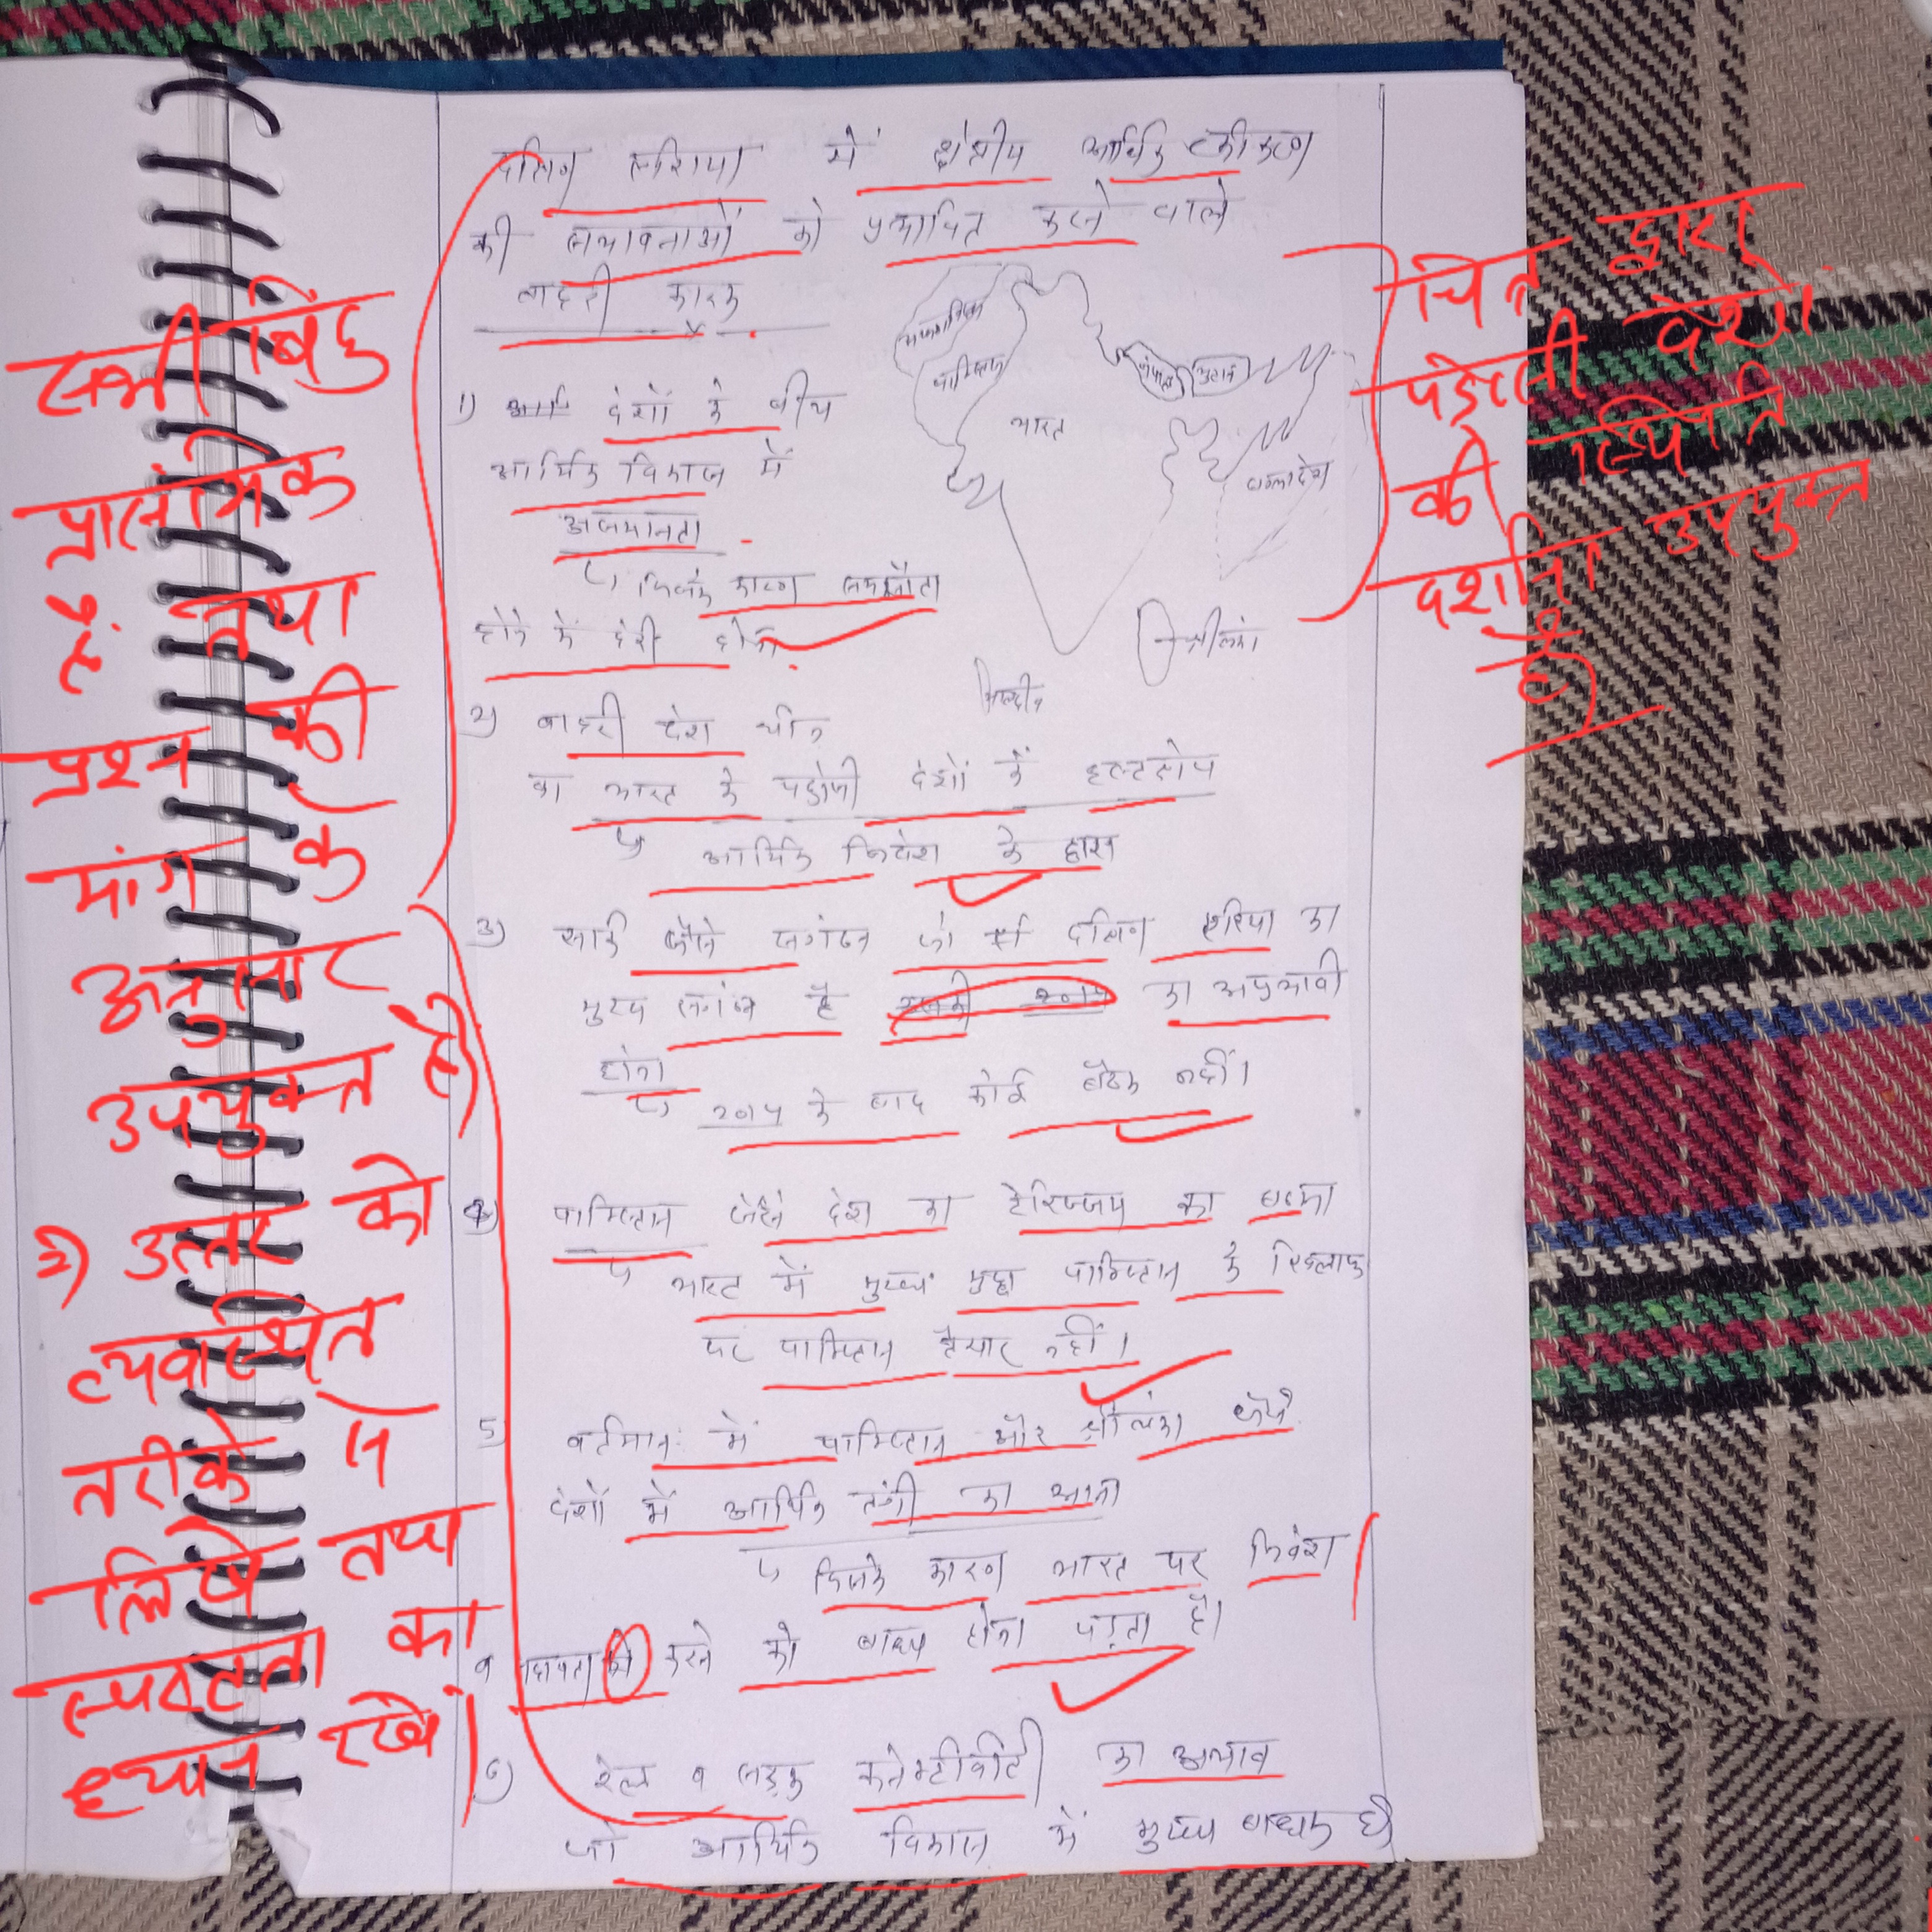 दक्षिण एशिया में क्षेत्रीय आर्थिक एकीकरण
की संभावनाओं को प्रभावित करने वाले
बाहरी कारक
1) देशों के बीच
आर्थिक विकास में
असमानता
जिसके कारण समझौता
होने में देरी होना
2) बाहरी देश चीन
का भारत के पड़ोसी देशों में हस्तक्षेप
आर्थिक निवेश के द्वारा
3) सार्क जैसे संगठन जो दक्षिण एशिया का
मुख्य संगठन है का अप्रभावी
होना
2014 के बाद कोई बैठक नहीं।
4) पाकिस्तान जैसे देश का टेरिज्जम का
भारत में मुख्य मुद्दा पाकिस्तान के खिलाफ
पर पाकिस्तान तैयार नहीं।
5) वर्तमान में पाकिस्तान और श्रीलंका जैसे
देशों में आर्थिक तंगी का आना
जिसके कारण भारत पर निवेश
व करने को बाध्य होना पड़ता है।
6) रेल व सड़क कनेक्टीवीटी का अभाव
जो आर्थिक विकास में मुख्य बाधक है
अफगानिस्तान
पाकिस्तान
भारत
नेपाल
भुटान
बांग्लादेश
श्रीलंका
मालदीव
सभी बिंदु
प्रासंगिक
हैं तथा
प्रश्न की
मांग के
अनुसार
उपयुक्त है।
2) उत्तर को
व्यवस्थित
तरीके से
लिखें तथा
स्पष्टता का
ध्यान रखें।
चित्र द्वारा
पड़ोसी देशों
की स्थिति
दर्शाना उपयुक्त
है।